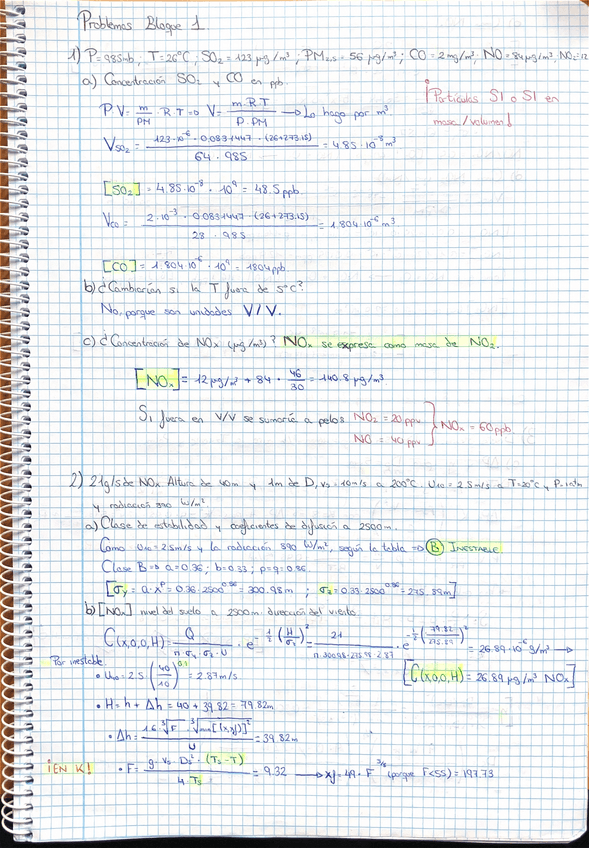 Problemas Bloque 1
1) P=985mb, T=26°C, SO₂=123 µg/m³, PM₂,₅=56 µg/m³; CO=2mg/m³. NO=84µg/m³, NO₂=12
a) Concentración SO₂ y CO en ppb.
¡Partículas SI o SI en masa/volumen!
P·V = m/PM · R·T => V = m·R·T / P·PM → Lo hago por m³
V_SO₂ = 123·10⁻⁶ · 0.0831447 · (26+273.15) / 64 · 985 = 4.85·10⁻⁸ m³
[SO₂] = 4.85·10⁻⁸ · 10⁹ = 48.5 ppb.
V_CO = 2·10⁻³ · 0.0831447 · (26+273.15) / 28 · 985 = 1.804·10⁻⁶ m³
[CO] = 1.804·10⁻⁶ · 10⁹ = 1804 ppb
b) ¿Cambiarían si la T fuera de 5°C?
No, porque son unidades V/V.
c) ¿Concentración de NOx (µg/m³)? NOx se expresa como masa de NO₂.
[NOx] = 12 µg/m³ + 84 · 46/30 = 140.8 µg/m³
Si fuera en V/V se sumaría a pelos NO₂ = 20 ppb
NO = 40 ppb } NOx = 60 ppb
2) 21g/s de NOx Altura de 40m y 1m de D, vs = 10m/s a 200°C. U₁₀ = 2.5m/s a T=20°C y P=1atm
y radiación 590 W/m²
a) Clase de estabilidad y coeficientes de difusión a 2500m.
Como u₁₀=2.5m/s y la radiación 590 W/m², según la tabla => B) INESTABLE.
Clase B => a=0.36; b=0.33; p=q=0.86.
[σy = a·xᵖ = 0.36·2500^0.86 = 300.98m ; σz = 0.33·2500^0.86 = 275.89m]
b) [NOx] nivel del suelo a 2500m. dirección del viento.
C(x,0,0,H) = Q / π·σy·σz·U · e^-½(H/σz)² = 21 / π·300.98·275.98·2.87 · e^-½(79.82/275.89)² = 26.89·10⁻⁶ g/m³ →
[C(x,0,0,H) = 26.89 µg/m³ NOx]
Por inestable
• U₄₀ = 2.5 (40/10)^0.1 = 2.87 m/s
• H = h + Δh = 40 + 39.82 = 79.82m
• Δh = 1.6 ∛F · ∛min[(x,xf)]² / U = 39.82m
¡EN K!
• F = g·Vs·Ds²·(Ts-T) / 4·Ts = 9.32 → xf = 49·F^5/8 (porque F<55) = 197.73